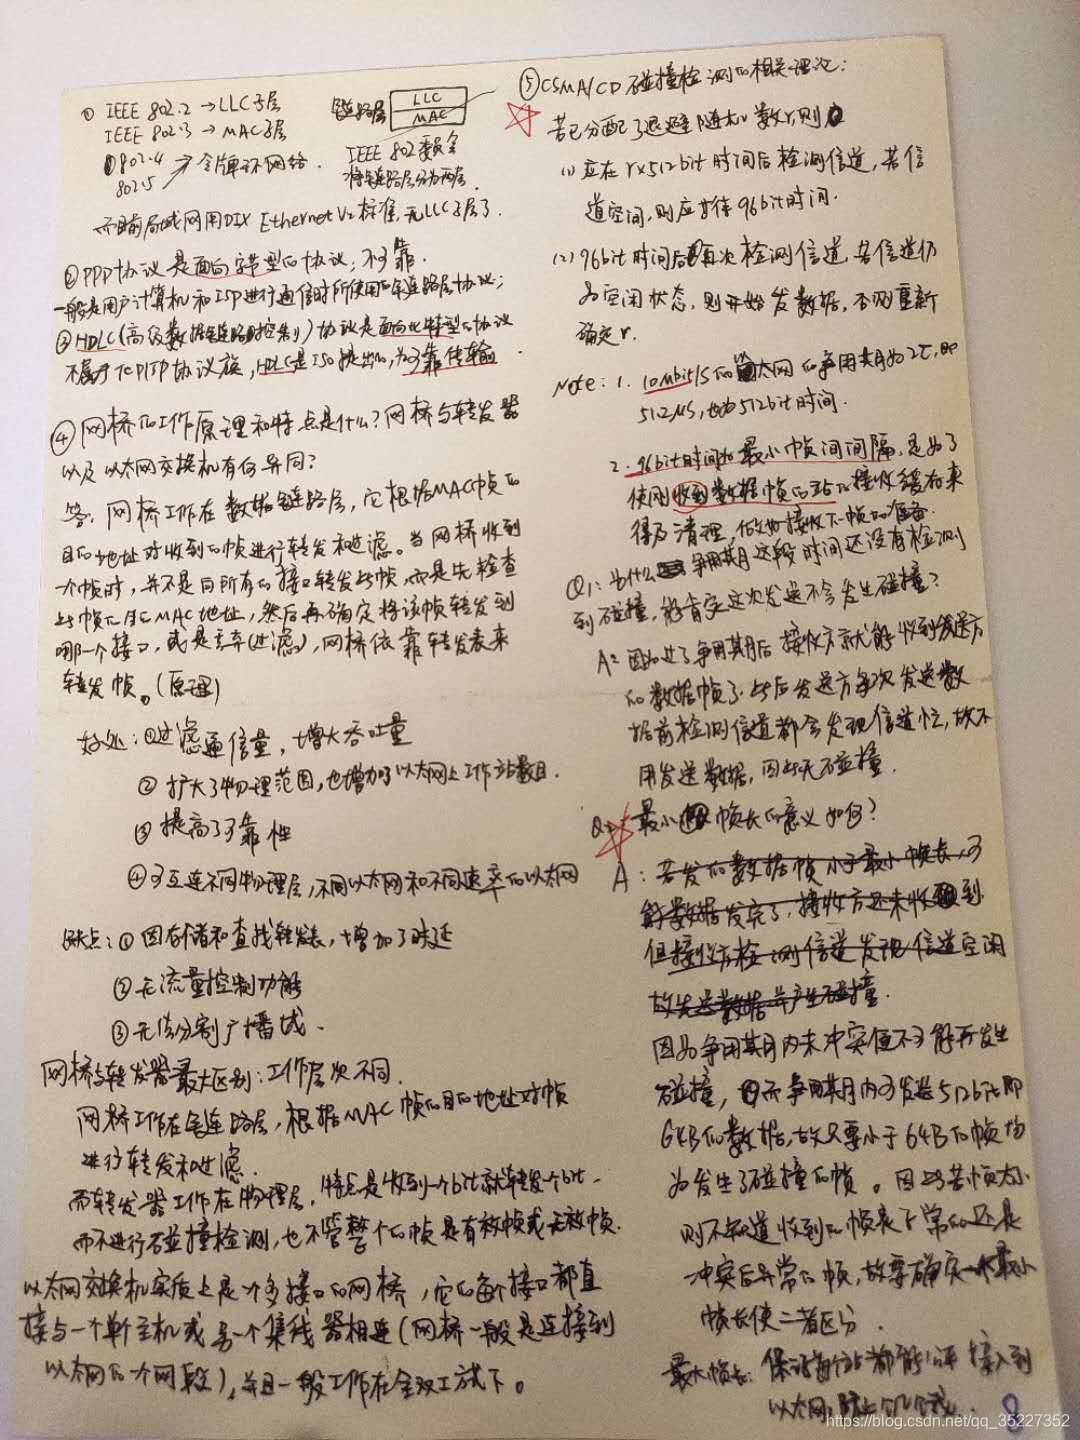 ① IEEE 802.2 → LLC子层
IEEE 802.3 → MAC子层
802.4
802.5 → 令牌环网络.
链路层 LLC
MAC
IEEE 802委员会
将链路层分为两层.
而目前局域网用DIX Ethernet V2标准,无LLC子层了.
②PPP协议是面向字节型的协议;不可靠.
一般是用户计算机和ISP进行通信时所使用的链路层协议;
③HDLC(高级数据链路控制)协议是面向比特型的协议
不属于TCP/IP协议族,HDLC是ISO提出的,为可靠传输.
④网桥的工作原理和特点是什么?网桥与转发器
以及以太网交换机有何异同?
答:网桥工作在数据链路层,它根据MAC帧的
目的地址对收到的帧进行转发和过滤。当网桥收到
一个帧时,并不是向所有的接口转发此帧,而是先检查
此帧的目的MAC地址,然后再确定将该帧转发到
哪一个接口,或是丢弃(过滤),网桥依靠转发表来
转发帧。(原理)
好处:①过滤通信量,增大吞吐量
②扩大了物理范围,也增加了以太网上工作站数目.
③提高了可靠性
④可互连不同物理层,不同以太网和不同速率的以太网
缺点:①因存储和查找转发表,增加了时延
②无流量控制功能
③无法分割广播域.
网桥与转发器最大区别:工作层次不同.
网桥工作在链路层,根据MAC帧的目的地址对帧
进行转发和过滤.
而转发器工作在物理层,特点是收到一个bit就转发一个bit.
而不进行碰撞检测,也不管整个的帧是有效帧或无效帧.
以太网交换机实质上是一个多接口的网桥,它的每个接口都直
接与一个单个主机或另一个集线器相连(网桥一般是连接到
以太网的一个网段),并且一般工作在全双工方式下。
⑤CSMA/CD碰撞检测的相关理论:
若已分配了退避随机数r,则
(1)应在r×512bit时间后检测信道,若信
道空闲,则应等待96bit时间.
(2)96bit时间后再次检测信道,若信道仍
为空闲状态,则开始发数据,否则重新
确定r.
Note:1. 10Mbit/s的以太网的争用期为2τ,即
51.2μs,也为512bit时间.
2. 96bit时间为最小帧间间隔,是为了
使刚收到数据帧的站的接收缓存来
得及清理,做好接收下一帧的准备.
Q1:为什么争用期这段时间还没有检测
到碰撞,能肯定这次发送不会发生碰撞?
A:因为过了争用期后接收方就能收到发送方
的数据帧了.此后发送方每次发送数
据前检测信道都会发现信道忙,故不
用发送数据,因此无碰撞.
最小帧长的意义如何?
A:若发的数据帧小于最小帧长,可
能数据发完了,接收方还未收到
但接收方检测信道发现信道空闲
故发送数据并产生碰撞.
因为争用期内未冲突便不可能再发生
碰撞,而争用期内可发送512bit即
64B的数据,故只要小于64B的帧均
为发生了碰撞的帧。因此若帧太小
则不知道收到的帧是正常的还是
冲突后异常的帧,故要确定一个最小
帧长使二者区分.
最大帧长:保证每个站都能公平接入到
以太网
8
https://blog.csdn.net/qq_35227352